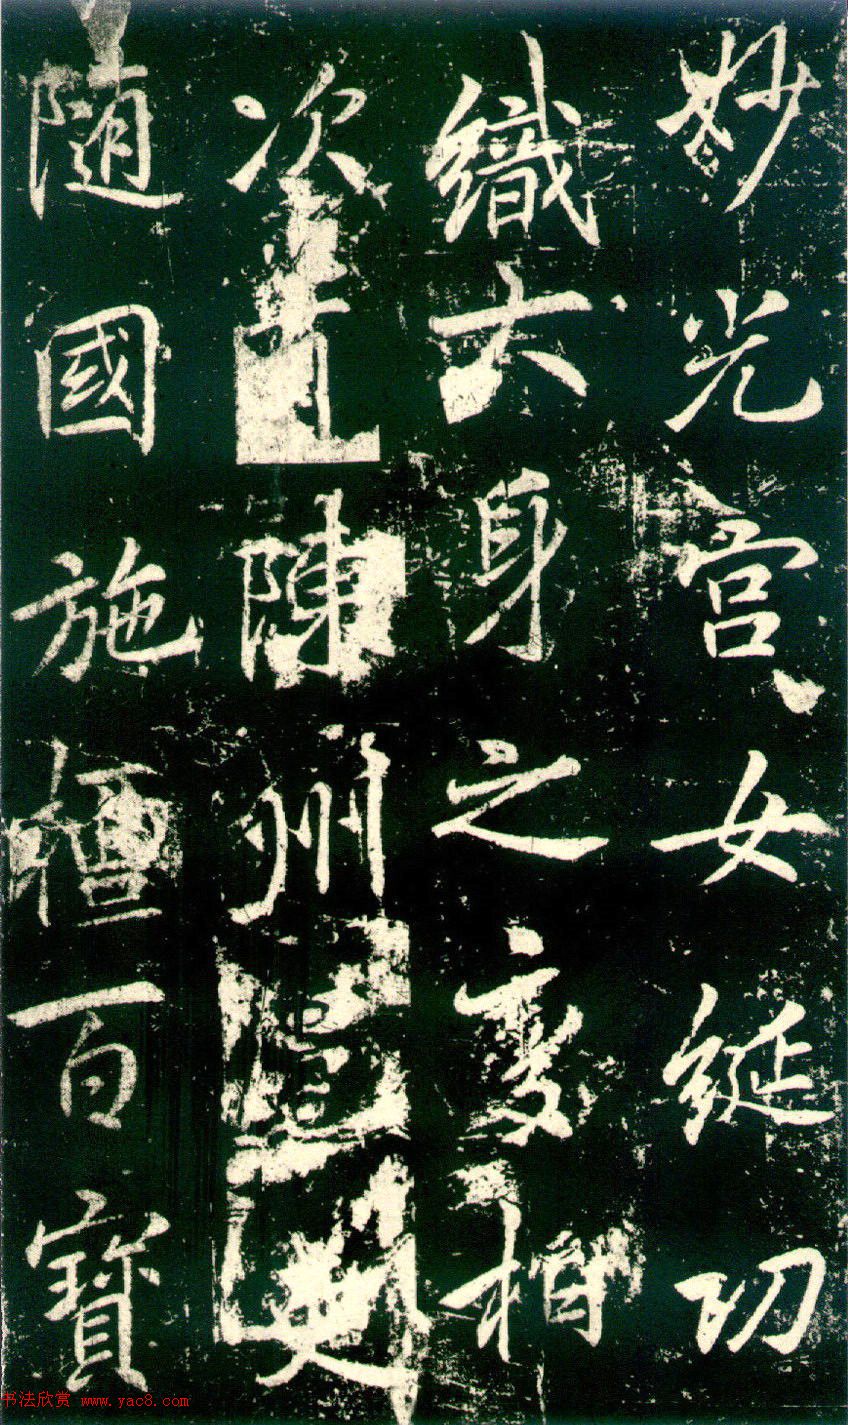 妙光宫女綖切
織六身之變相
次陳州
隨國施檀百寶
书法欣赏 www.yac8.com